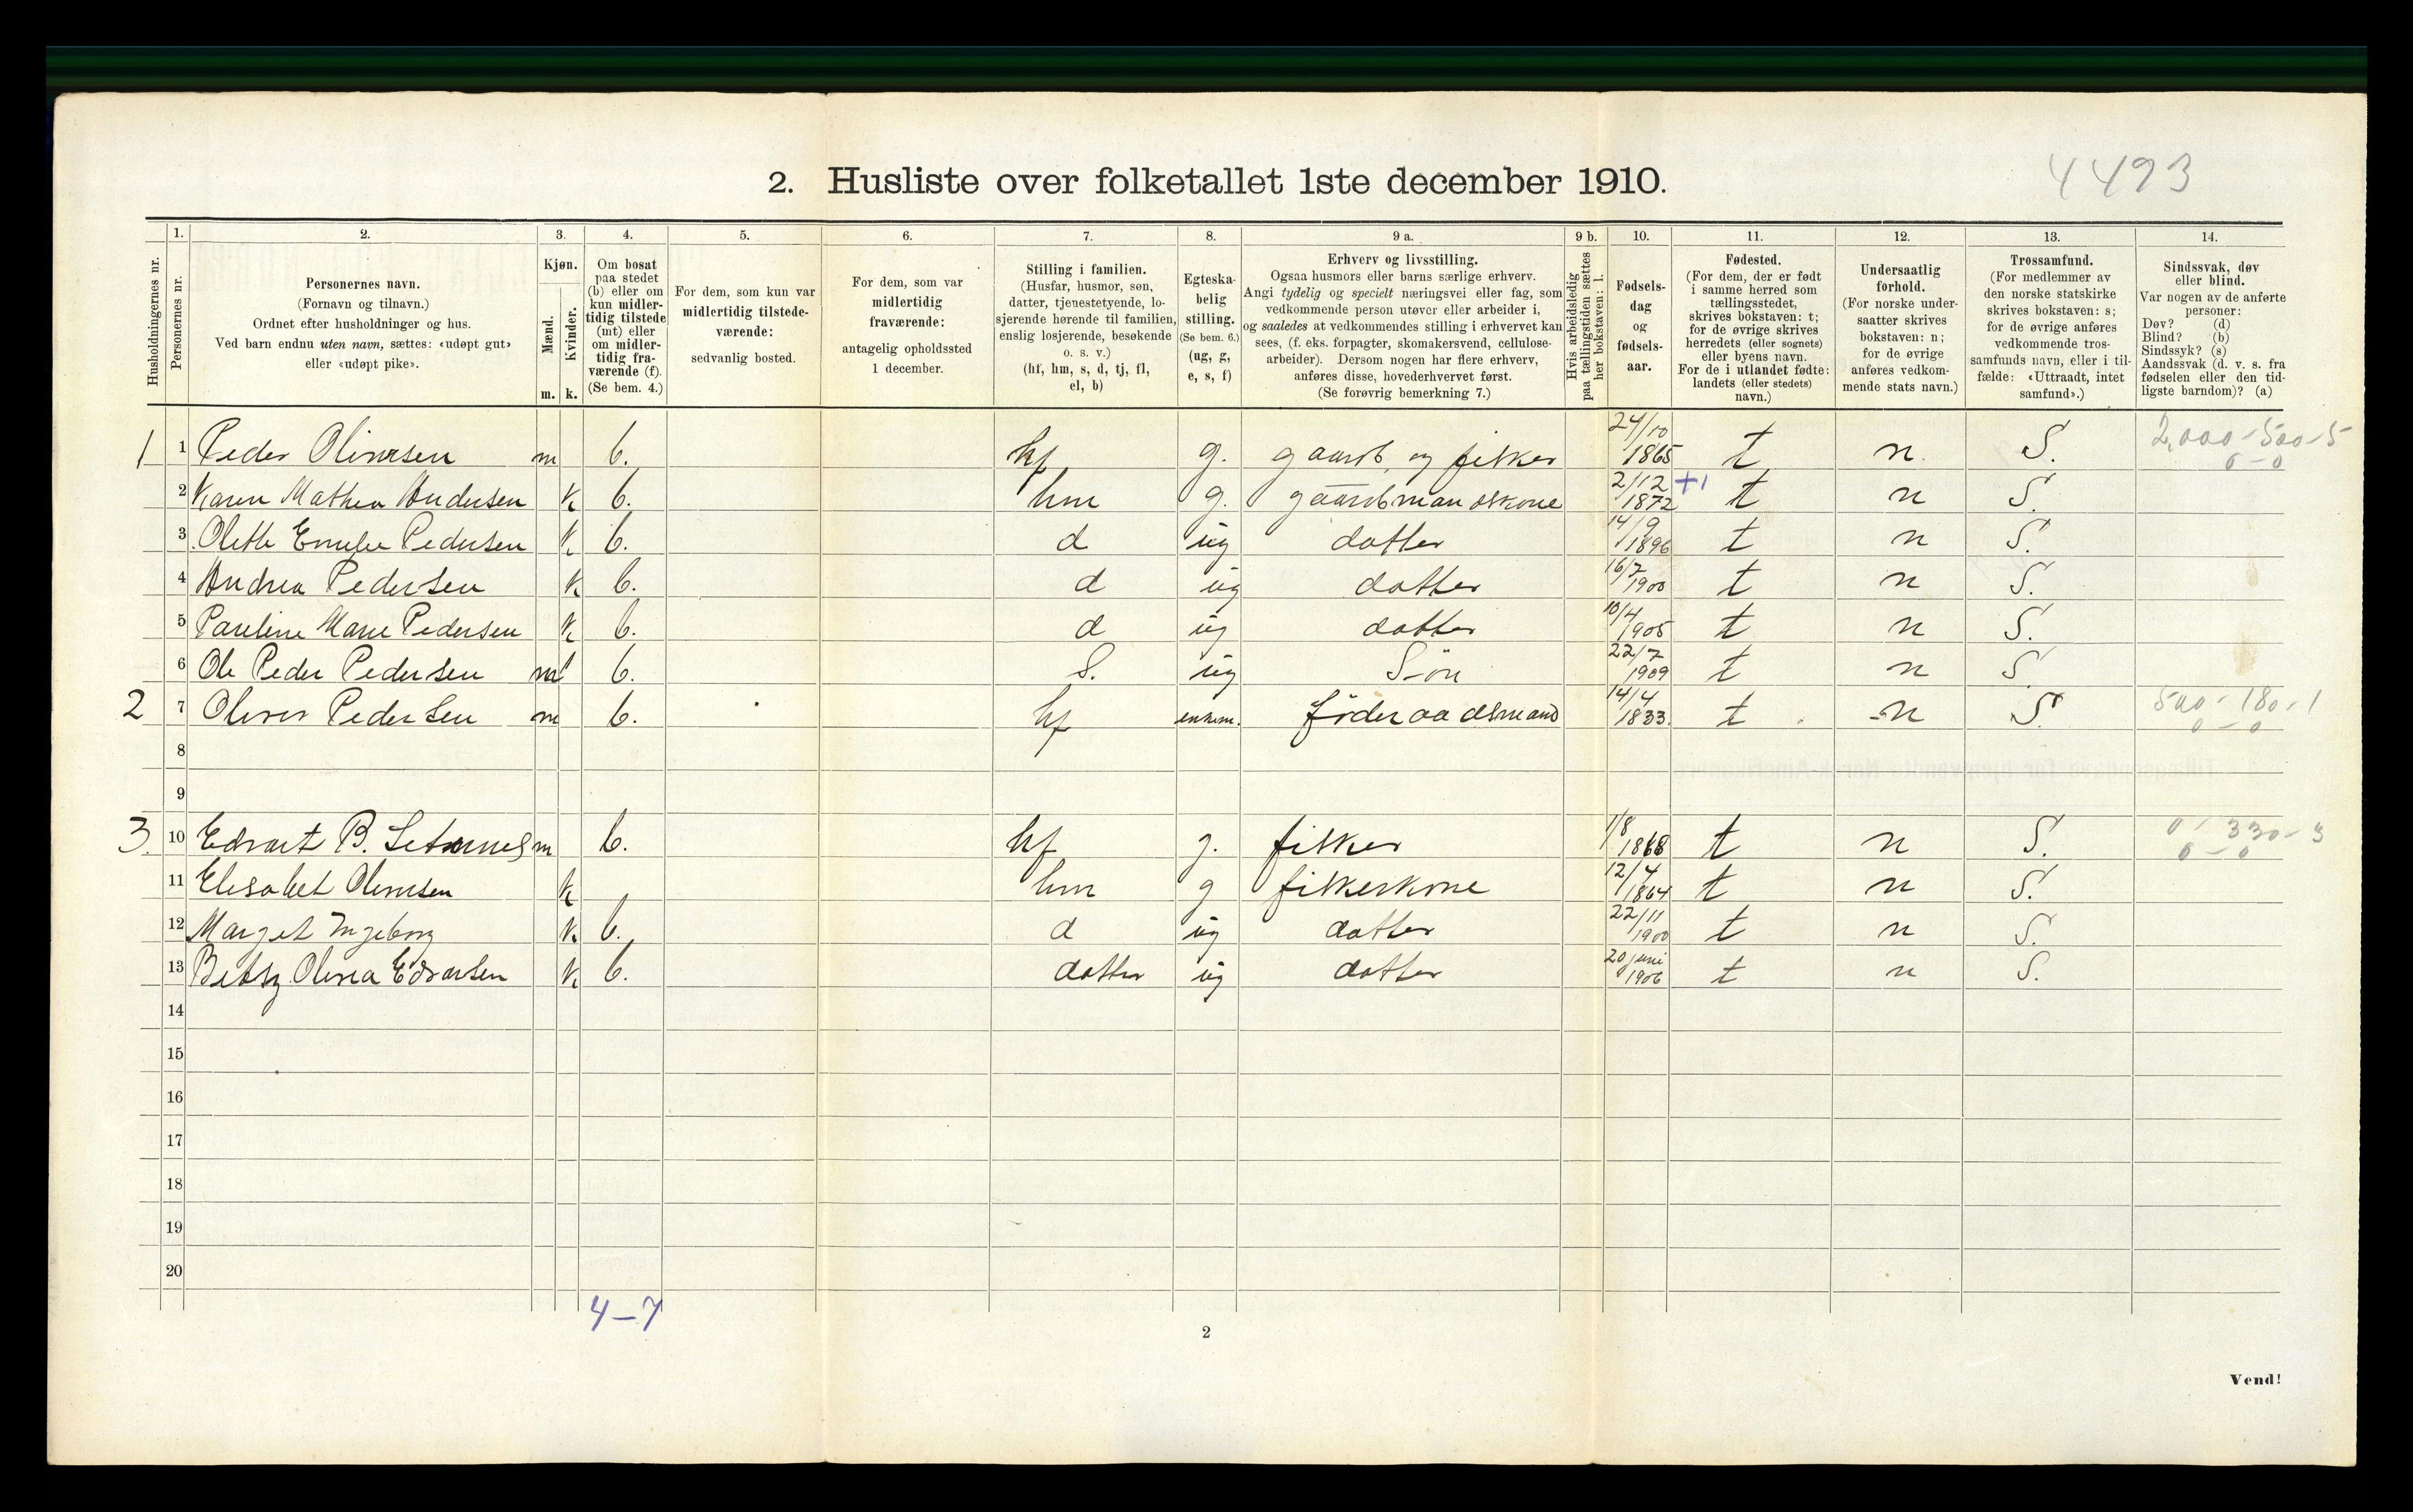 4493
2. Husliste over folketallet 1ste december 1910.
Husholdningernes nr.
1. Personernes nr.
2. Personernes navn.
(Fornavn og tilnavn.)
Ordnet efter husholdninger og hus.
Ved barn endnu uten navn, sættes: «udøpt gut»
eller «udøpt pike».
3. Kjøn.
Mænd. Kvinder.
m. k.
4. Om bosat
paa stedet
(b) eller om
kun midler-
tidig tilstede
(mt) eller
om midler-
tidig fra-
værende (f).
(Se bem. 4.)
5. For dem, som kun var
midlertidig tilstede-
værende:
sedvanlig bosted.
6. For dem, som var
midlertidig
fraværende:
antagelig opholdssted
1 december.
7. Stilling i familien.
(Husfar, husmor, søn,
datter, tjenestetyende, lo-
sjerende hørende til familien,
enslig losjerende, besøkende
o. s. v.)
(hf, hm, s, d, tj, fl,
el, b)
8. Egteska-
belig
stilling.
(Se bem. 6.)
(ug, g,
e, s, f)
9 a. Erhverv og livsstilling.
Ogsaa husmors eller barns særlige erhverv.
Angi tydelig og specielt næringsvei eller fag, som
vedkommende person utøver eller arbeider i,
og saaledes at vedkommendes stilling i erhvervet kan
sees, (f. eks. forpagter, skomakersvend, cellulose-
arbeider). Dersom nogen har flere erhverv,
anføres disse, hovederhvervet først.
(Se forøvrig bemerkning 7.)
9 b. Hvis arbeidsledig
paa tællingstiden sættes
her bokstaven: l.
10. Fødsels-
dag
og
fødsels-
aar.
11. Fødested.
(For dem, der er født
i samme herred som
tællingsstedet,
skrives bokstaven: t;
for de øvrige skrives
herredets (eller sognets)
eller byens navn.
For de i utlandet fødte:
landets (eller stedets)
navn.)
12. Undersaatlig
forhold.
(For norske under-
saatter skrives
bokstaven: n;
for de øvrige
anføres vedkom-
mende stats navn.)
13. Trossamfund.
(For medlemmer av
den norske statskirke
skrives bokstaven: s;
for de øvrige anføres
vedkommende tros-
samfunds navn, eller i til-
fælde: «Uttraadt, intet
samfund».)
14. Sindssvak, døv
eller blind.
Var nogen av de anførte
personer:
Døv? (d)
Blind? (b)
Sindssyk? (s)
Aandssvak (d. v. s. fra
fødselen eller den tid-
ligste barndom)? (a)
1 1 Peder Oliversen m b. hf g. gaardb. og fisker 24/10 1865 t n. S. 2,000-500-5 0-0
2 Karen Mathea Andersen k b. hm g. gaardbmandskone 2/12 1872 +1 t n S.
3 Olette Emelie Pedersen k b. d ug datter 14/9 1896 t n S.
4 Andrea Pedersen k b. d ug datter 16/7 1900 t n S.
5 Pauline Marie Pedersen k b. d ug datter 10/4 1905 t n S.
6 Ole Peder Pedersen m b. S. ug Søn 22/7 1909 t n S
2 7 Oliver Pedersen m b. hf enkem. føderaadsmand 14/4 1833. t n S. 500-180-1 0-0
8
9
3. 10 Edvart B. m b. hf g. fisker 1/8 1868 t n S. 0-330-3 0-0
11 Elisabet Oliversen k hm g fiskerkone 12/4 1864 t n S.
12 Marget Ingeborg k b. d ug datter 22/11 1900 t n S.
13 Betsy Olivia Edvartsen k b. datter ug datter 20 juni 1906 t n S.
14
15
16
17
18
19
20
4-7
2
Vend!